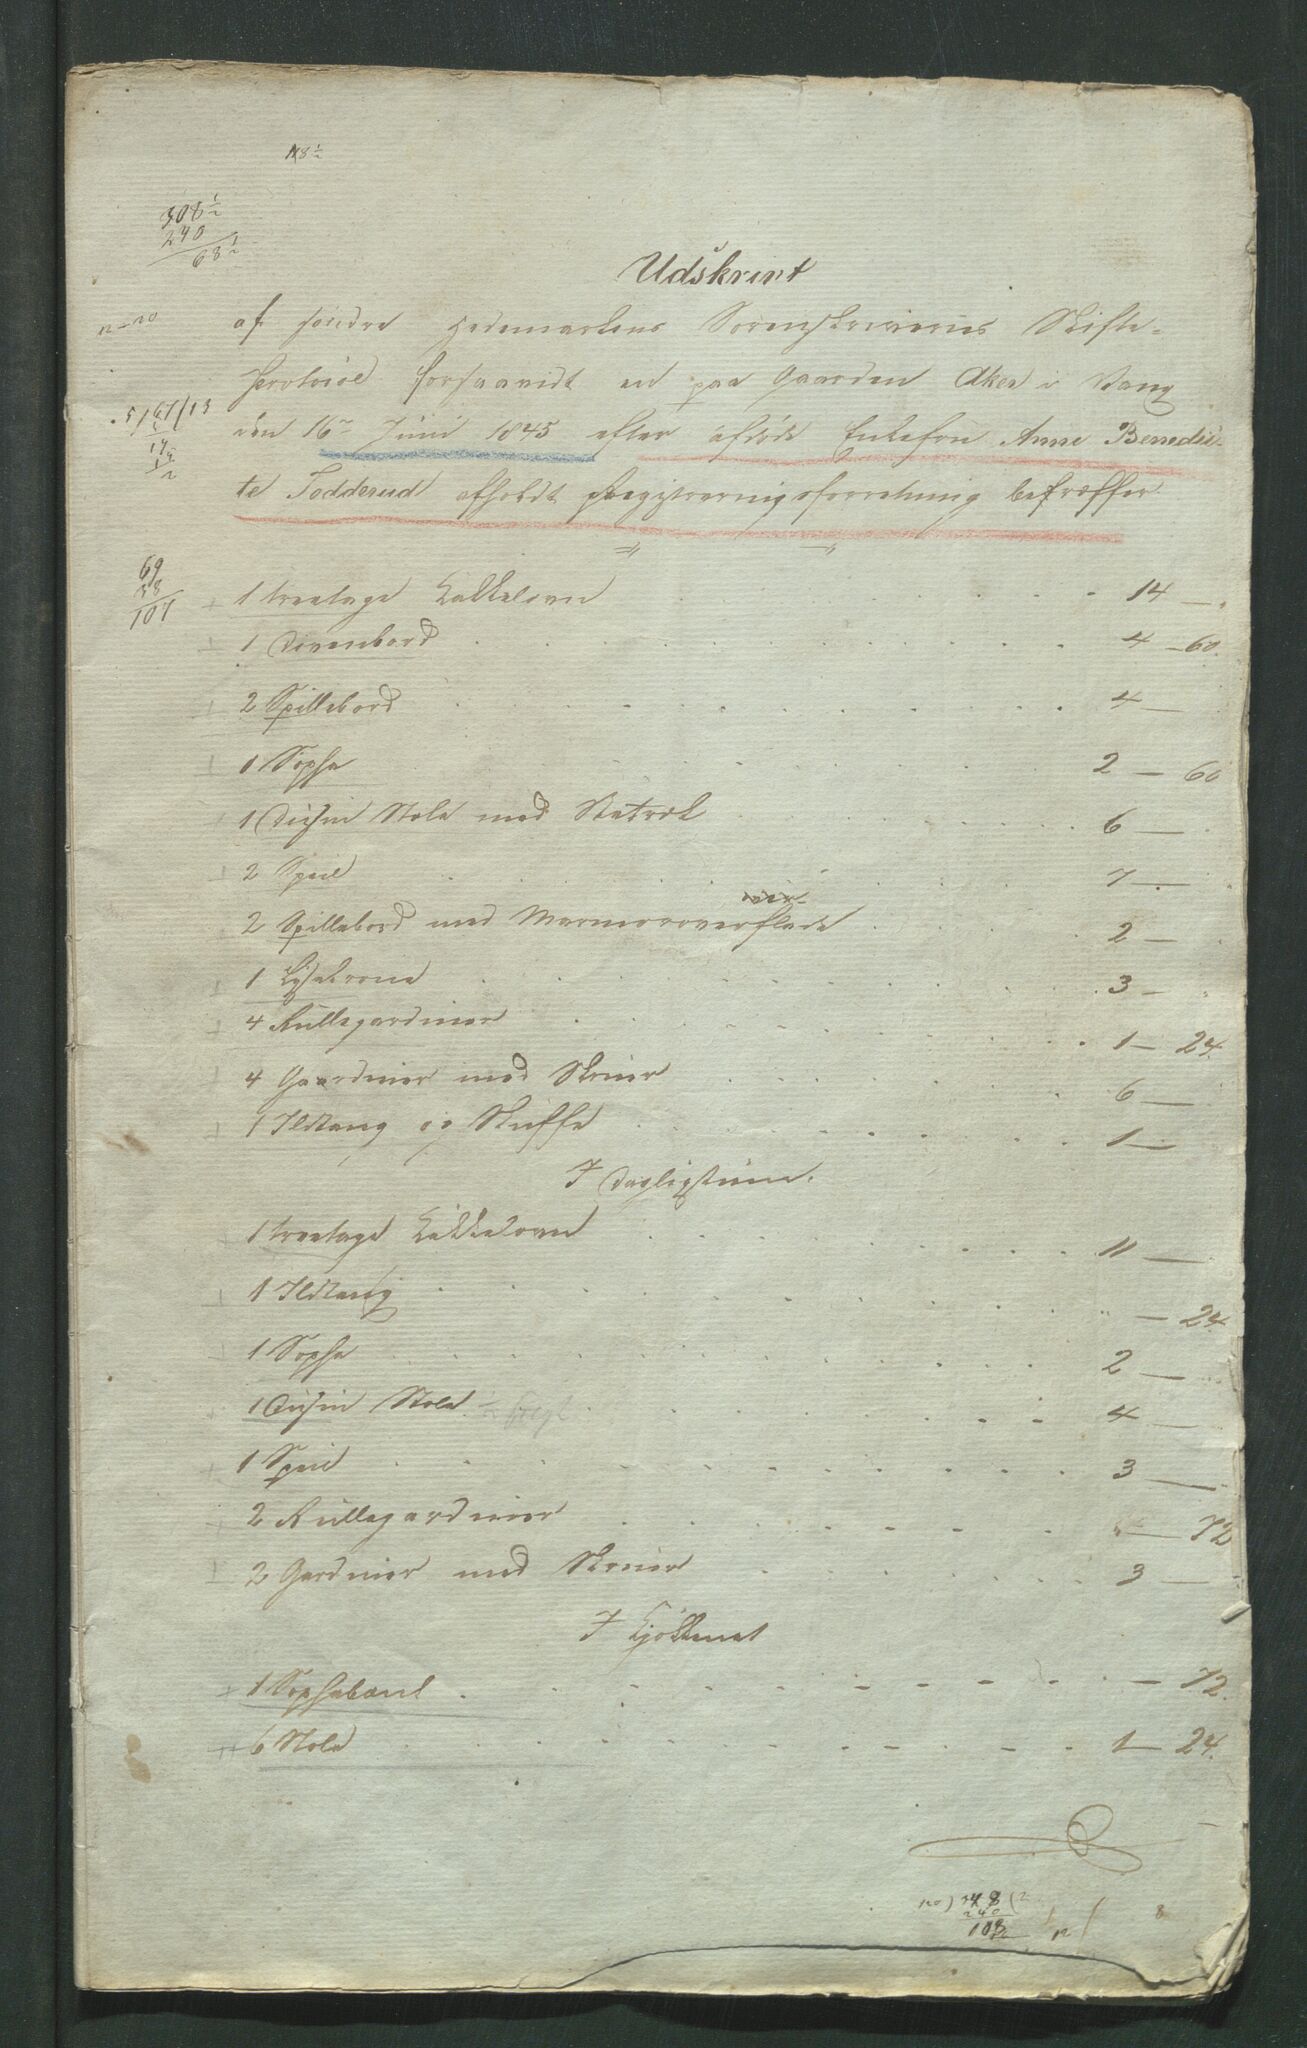 118½
308½
240
68½
Udskrivt
12-20
af söndre Hedemarkens Sorenskriveries Skifte-
protocol forsaavidt en paa Gaarden Aker i Vang
5/67/13
den 16de Juni 1845 efter afdöde Enkefru Anne Benedic-
te Todderud afholdt Registreringsforretning betræffer
69
38
107
1 treetages Kakkelovn 14 —
1 Divanbord 4 — 60.
2 Spillebord 4 —
1 Sopha 2 — 60
1 Dusin Stole med Betræk 6 —
2 Speil 7 —
2 Spillebord med Marmoroverflade 2 —
1 Lysekrone 3 —
4 Rullegardiner 1 — 24.
4 Gardiner med Skruer 6 —
1 Ildtang og Skuffe 1 —
I Dagligstuen.
1 treetages Kakkelovn 11 —
1 Ildtang " — 24
1 Sopha 2 —
1 Dusin Stole 4 —
1 Speil 3 —
2 Rullegardiner — 72
2 Gardiner med Skruer 3 —
I Kjökkenet
1 Sophabænk — 72.
6 Stole 1 — 24.
120) 348 (2
240
108
12
8